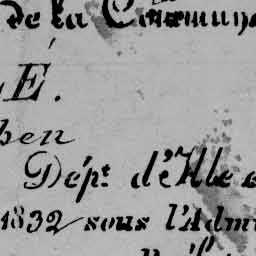 de la Commune
É.
hen
Dépt. d'Ille
1832 sous l'Admi